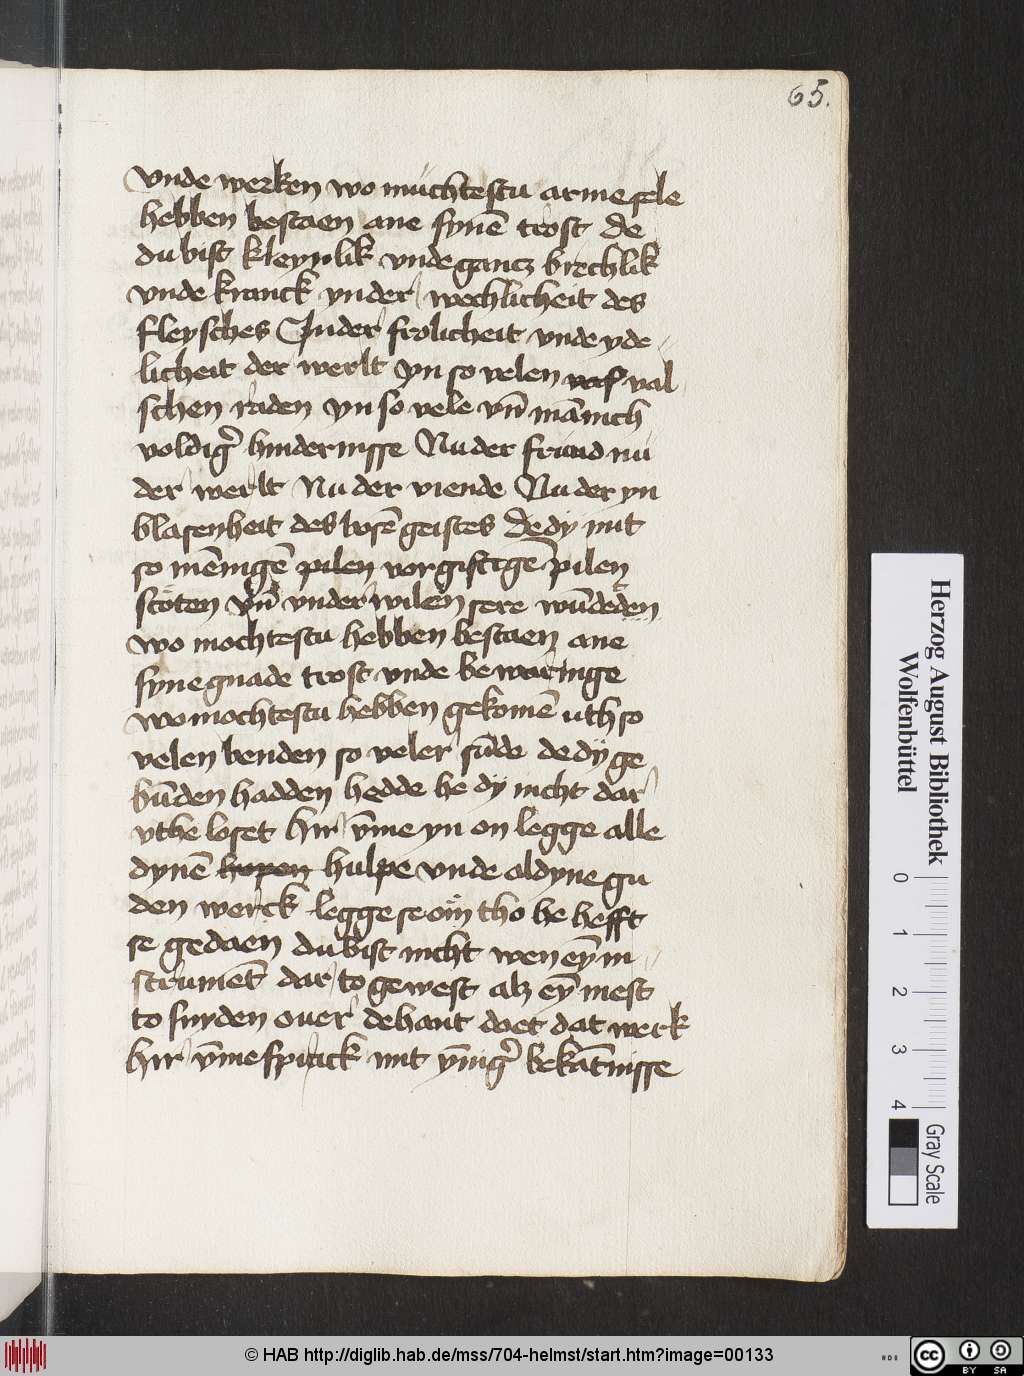 65.
vnde werken wo müchtestu arme sele
hebben bestaen ane synē trost de
du bist kleynlik vnde gancz brechlik
vnde kranck yn der wechlicheit des
fleysches In der frolicheit vnde yde
licheit der werlt yn so velen val
schen raden yn so vele vn̄ mānich
voldigˀ hindernisse Nu der frund nu
der werlt Nu der viende Nu der yn
blasenheit des bosē geistes de dy mit
so mēnigē pilen vorgiftigē pilen
stöten vn̄ vnderwilen sere wūdeden
wo mochtestu hebben bestaen ane
syne gnade trost vnde bewaringe
wo mochtestu hebben gekomē uth so
velen benden so veler sūde de dy ge
būden hadden hedde he dy nicht dar
vthe loset hir v̄me yn on legge alle
dynē hopen hulpe vnde al dyne gu
den werck legge se om tho he hefft
se gedaen du bist nicht wen eȳ in
strumēt dar to gewest alz eȳ mest
to snyden ouer de hant doet dat werk
hir v̄me sprick mit ȳnigˀ bekātnisse
Herzog August Bibliothek
Wolfenbüttel
0 1 2 3 4
Gray Scale
© HAB http://diglib.hab.de/mss/704-helmst/start.htm?image=00133
cc BY SA